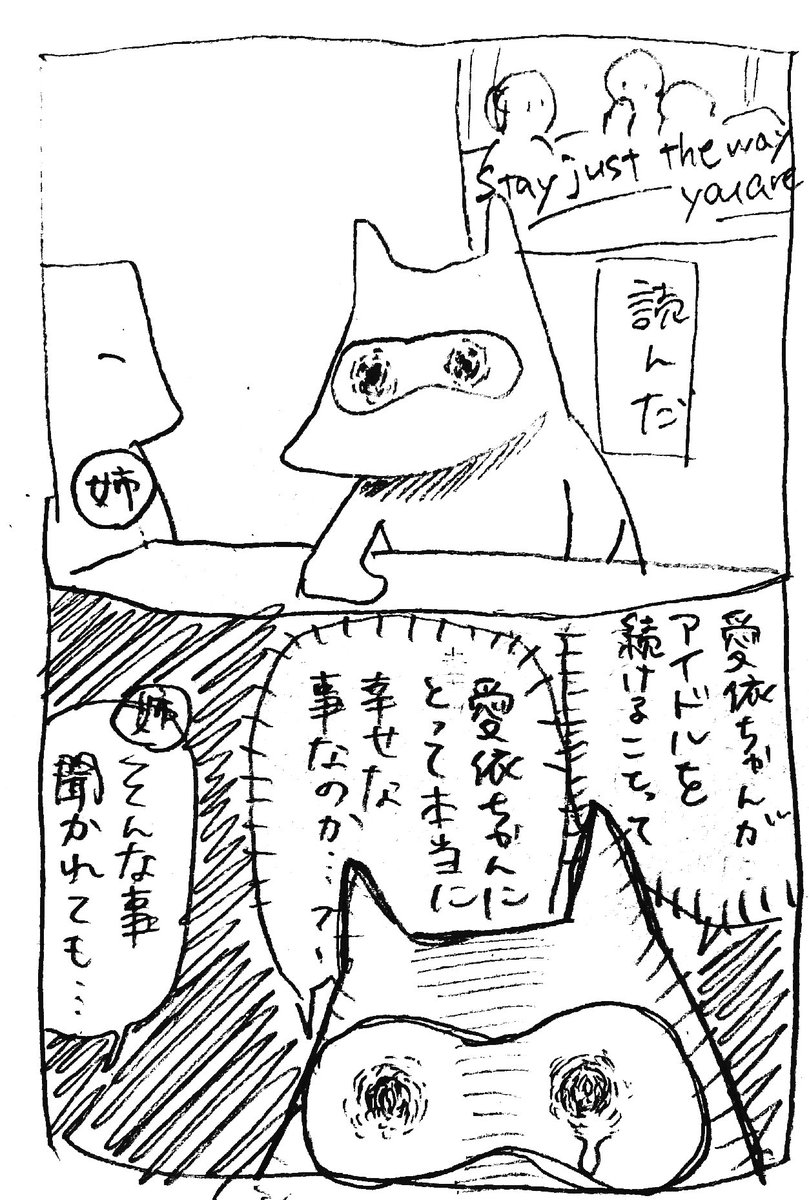 Stay just the way
you are
読んだ
姉
愛依ちゃんが…
アイドルを
続けることって
愛依ちゃんに
とって本当に
幸せな
事なのか…？
姉
そんな事
聞かれても…